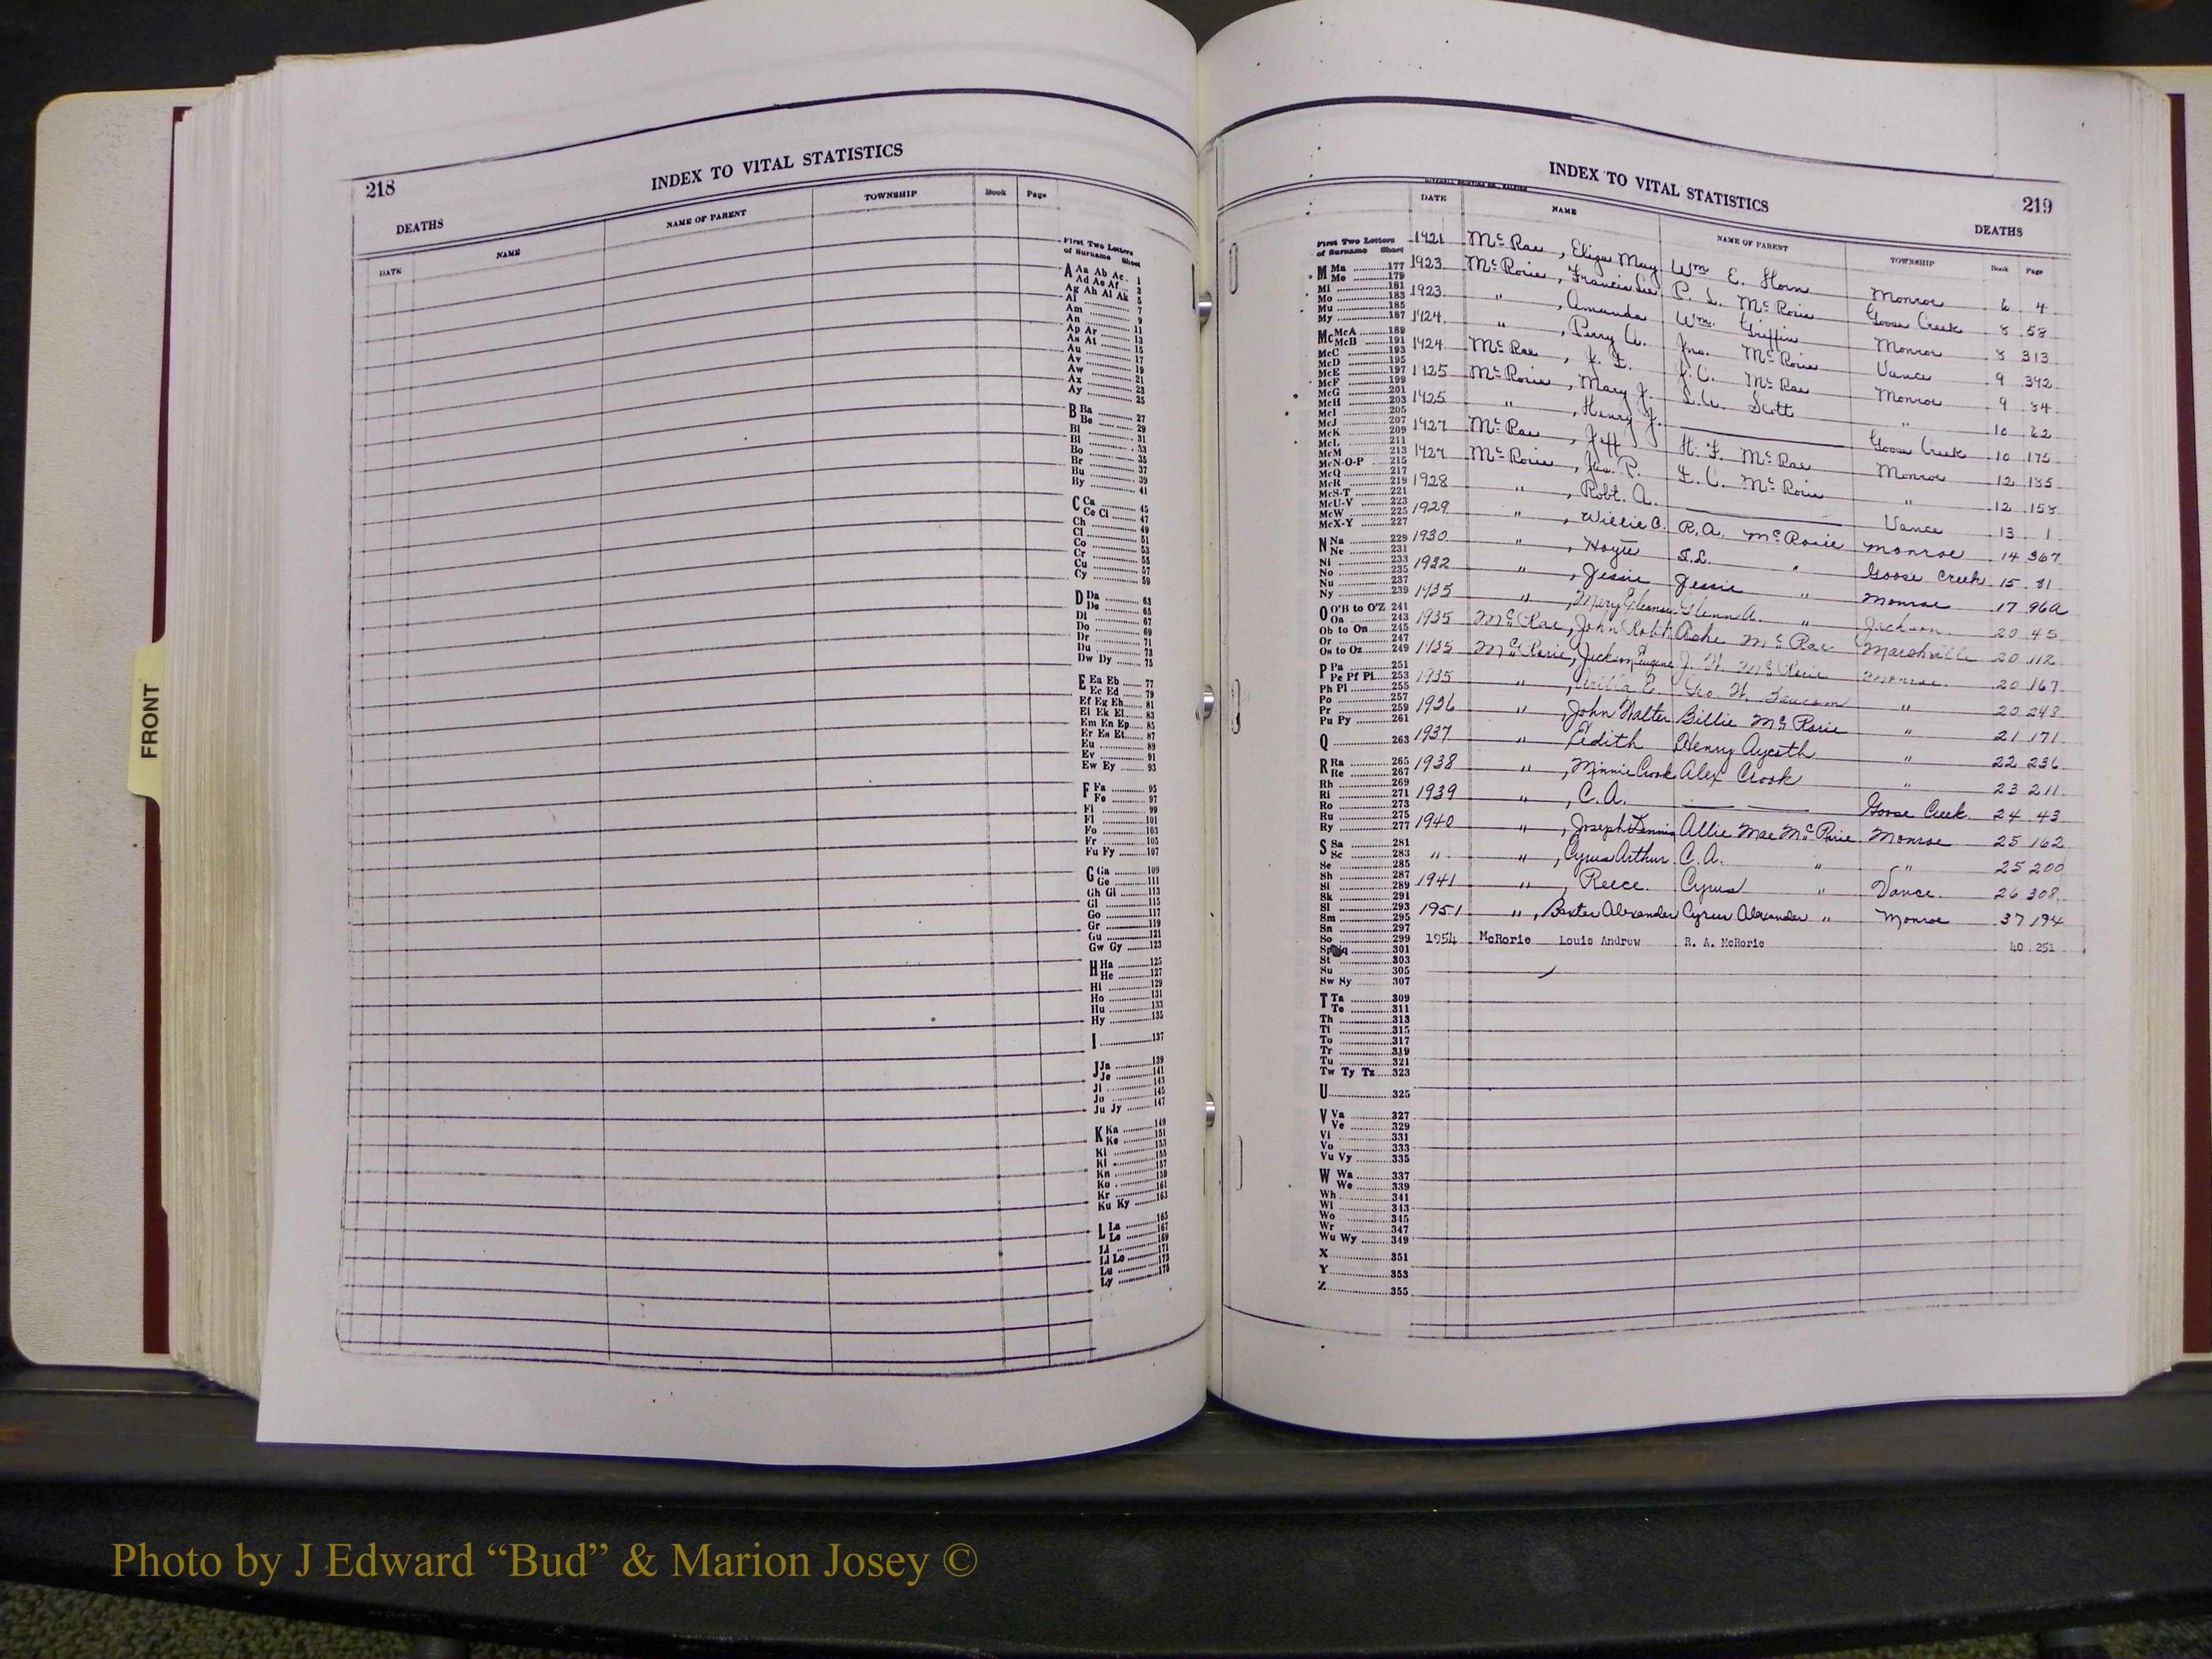 FRONT
218
INDEX TO VITAL STATISTICS
DEATHS
DATE NAME NAME OF PARENT TOWNSHIP Book Page
First Two Letters
of Surname Sheet
A Aa Ab Ac 1
Ad Ae Af 3
Ag Ah Ai Ak 5
Al 7
Am 9
An 11
Ap Ar 13
As At 15
Au 17
Av 19
Aw 21
Ax 23
Ay 25
B Ba 27
Be 29
Bi 31
Bl 33
Bo 35
Br 37
Bu 39
By 41
C Ca 45
Ce Ci 47
Ch 49
Cl 51
Co 53
Cr 55
Cu 57
Cy 59
D Da 63
De 65
Di 67
Do 69
Dr 71
Du 73
Dw Dy 75
E Ea Eb 77
Ec Ed 79
Ef Eg Eh 81
Ei Ek El 83
Em En Ep 85
Er Es Et 87
Eu 89
Ev 91
Ew Ey 93
F Fa 95
Fe 97
Fi 99
Fl 101
Fo 103
Fr 105
Fu Fy 107
G Ga 109
Ge 111
Gh Gi 113
Gl 115
Go 117
Gr 119
Gu 121
Gw Gy 123
H Ha 125
He 127
Hi 129
Ho 131
Hu 133
Hy 135
I 137
J Ja 139
Je 141
Ji 143
Jo 145
Ju Jy 147
K Ka 149
Ke 151
Ki 153
Kl 155
Kn 157
Ko 159
Kr 161
Ku Ky 163
L La 165
Le 167
Li 169
Ll Lo 171
Lu 173
Ly 175
INDEX TO VITAL STATISTICS
219
DEATHS
DATE NAME NAME OF PARENT TOWNSHIP Book Page
First Two Letters
of Surname Sheet
M Ma 177
Me 179
Mi 181
Mo 183
Mu 185
My 187
Mc McA 189
McB 191
McC 193
McD 195
McE 197
McF 199
McG 201
McH 203
McI 205
McJ 207
McK 209
McL 211
McM 213
McN-O-P 215
McQ 217
McR 219
McS-T 221
McU-V 223
McW 225
McX-Y 227
N Na 229
Ne 231
Ni 233
No 235
Nu 237
Ny 239
O O'B to O'Z 241
Oa 243
Ob to On 245
Or 247
Os to Oz 249
P Pa 251
Pe Pf Pi 253
Ph Pl 255
Po 257
Pr 259
Pu Py 261
Q 263
R Ra 265
Re 267
Rh 269
Ri 271
Ro 273
Ru 275
Ry 277
S Sa 281
Sc 283
Se 285
Sh 287
Si 289
Sk 291
Sl 293
Sm 295
Sn 297
So 299
301
St 303
Su 305
Sw Sy 307
T Ta 309
Te 311
Th 313
Ti 315
To 317
Tr 319
Tu 321
Tw Ty Tz 323
U 325
V Va 327
Ve 329
Vi 331
Vo 333
Vu Vy 335
W Wa 337
We 339
Wh 341
Wi 343
Wo 345
Wr 347
Wu Wy 349
X 351
Y 353
Z 355
1921 McRae, Eliza May Wm E. Horn Monroe 6 4
1923 McRorie, Francis Lee P. L. McRorie Goose Creek 8 58
1923 " , Amanda Wm. Griffin Monroe 8 313
1924 " , Perry A. Jno. McRorie Vance 9 392
1924 McRae, J. C. McRae Monroe 9 84
1925 McRorie, Mary J. Scott " 10 62
1925 " , Henry J. Goose Creek 10 175
1927 McRae, Jeff H. F. McRae Monroe 12 135
1927 McRorie, Jas. P. McRorie " 12 158
1928 " , Robt. A. Vance 13 1
1929 " , Willie C. R. A. McRorie Monroe 14 367
1930 " , Hoyte S.L. " Goose Creek 15 81
1932 " , Jessie Jessie " Monroe 17 96a
1935 " , Mary Eleanor Glenn A. " Jackson 20 45
1935 McRae, John Robt. Ashe McRae Marshville 20 112
1935 McRorie, Jackson Eugene J. W. McRorie Monroe 20 167
1935 " , E. Geo. W. " 20 248
1936 " , John Walter Billie McRorie " 21 171
1937 " Edith Henry Aycoth " 22 236
1938 " , Minnie Crook Alex Crook " 23 211
1939 " , C. A. Goose Creek 24 43
1940 " , Joseph Dennis Allie Mae McRorie Monroe 25 162
" " , Cyrus Arthur C. A. " " 25 200
1941 " , Reece Cyrus " Vance 26 308
1951 " , Baxter Alexander Cyrus Alexander " Monroe 37 194
1954 McRorie Louis Andrew R. A. McRorie 40 251
Photo by J Edward “Bud” & Marion Josey ©